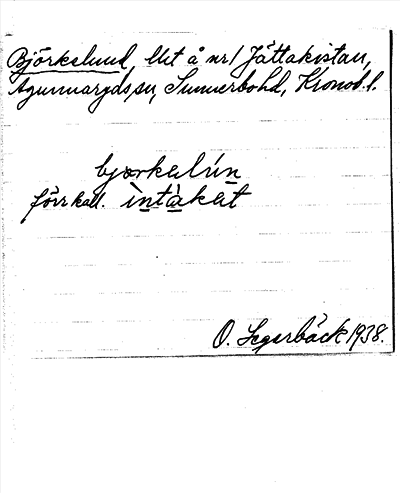 Björkelund, lht å nr 1 Jättakistan,
Agunnaryds sn, Sunnerbo hd, Kronob. l.
bjærkelún
förr kall. ìntàket
O. Segerbäck 1938.